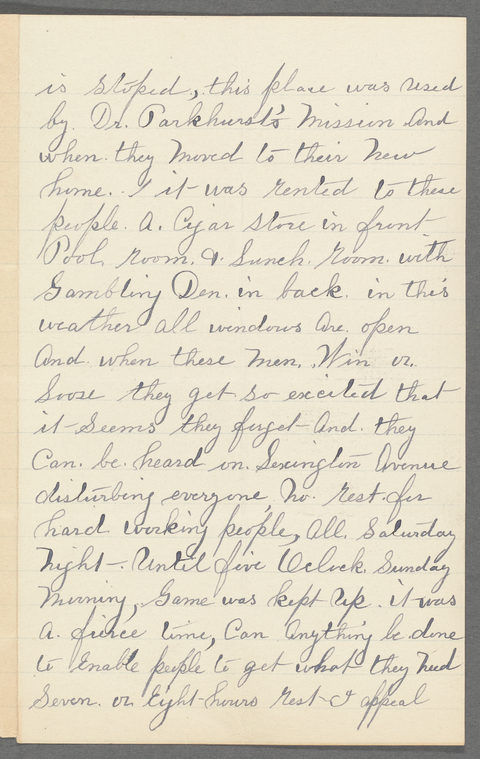 is stoped, this place was used
by. Dr. Parkhurst's Mission And
when. they Moved to their New
home. it was rented to these
people. A. Cigar store in front
Pool. room. & Lunch. room. with
Gambling Den. in back. in this
weather all windows Are. open
And. when these Men. Win or.
Loose they get so excited that
it seems they forget And. they
Can. be. heard on. Lexington Avenue
disturbing everyone, No. rest. for
hard working people, All. Saturday
Night. Until five Oclock. Sunday
Morning, Game was kept Up. it was
A. fierce time, Can Anything be done
to Enable people to get what they Need
Seven. or Eight hours rest I appeal